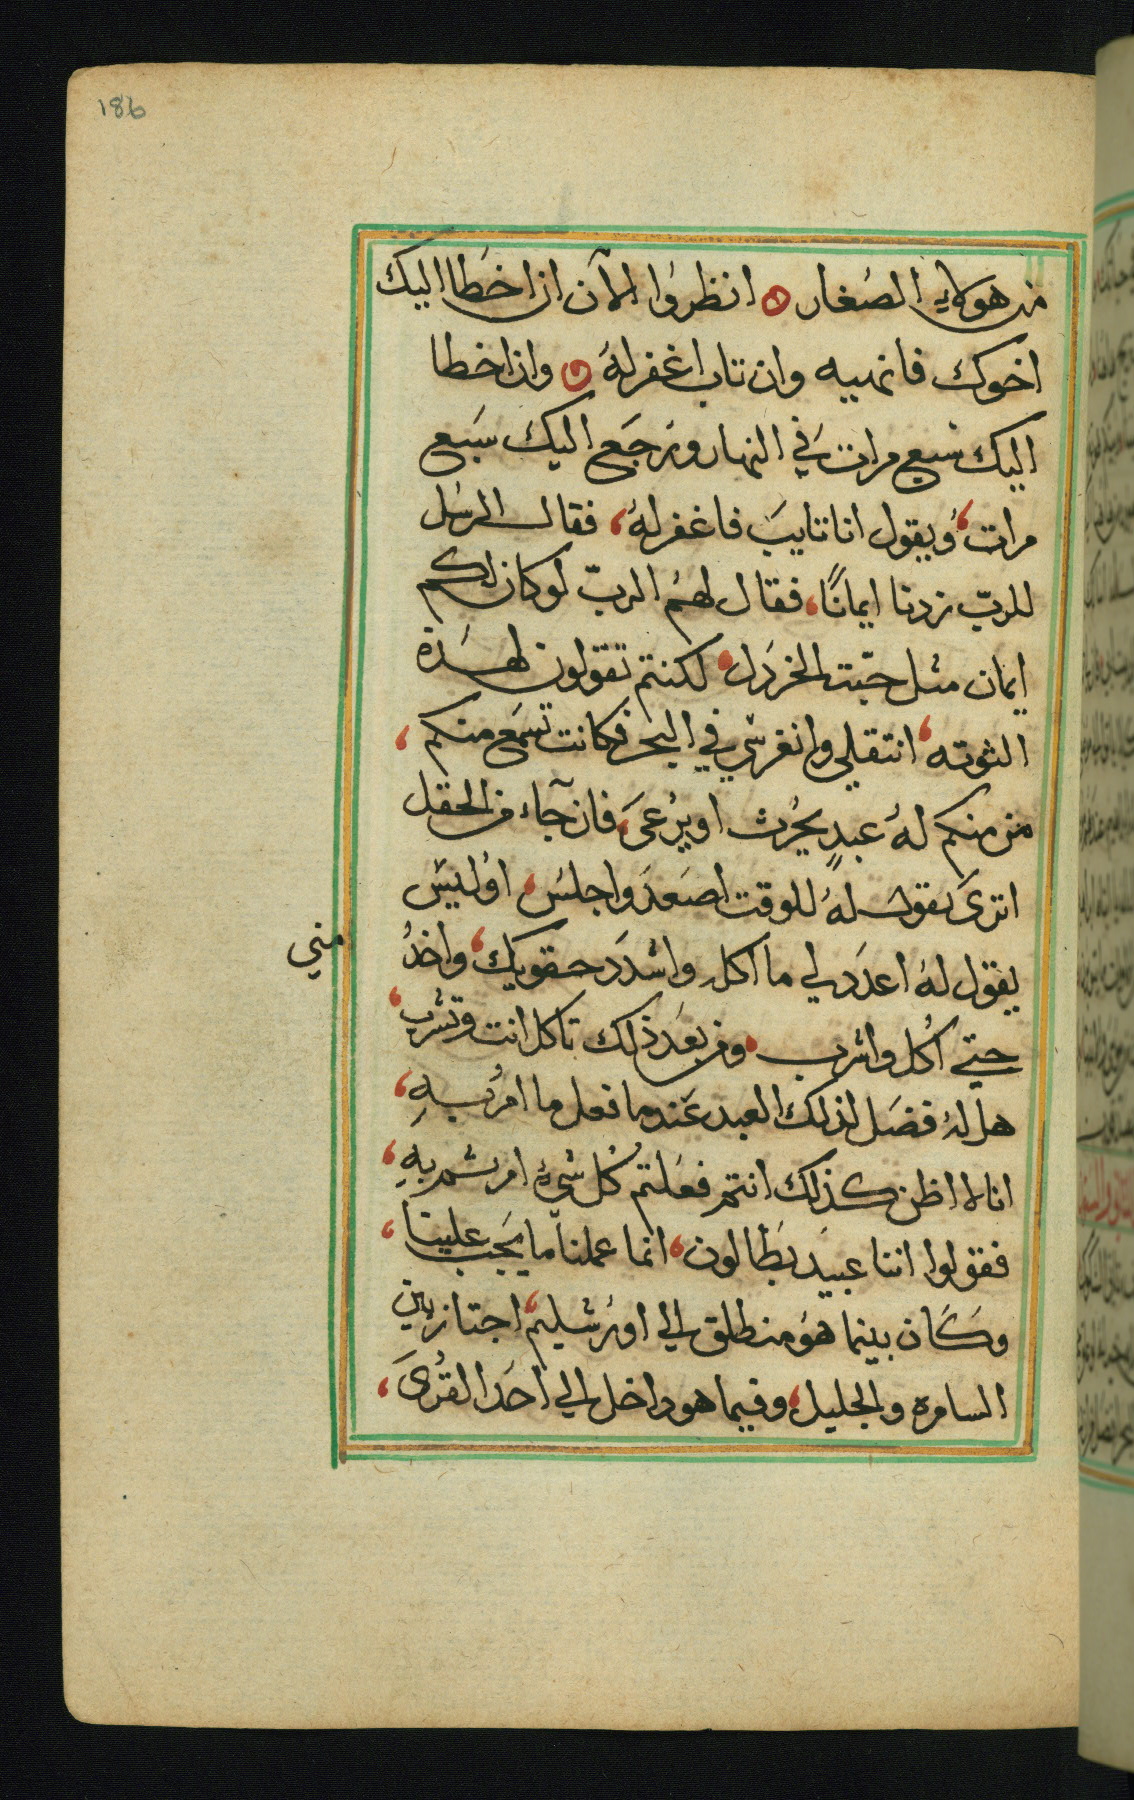 186
من هولاي الصغار ۞ انظروا الآن ان اخطا اليك
اخوك فانهييه وان تاب اغفر لهُ ۞ وان اخطا
اليك سبع مرات في النهار ورجع اليك سبع
مرات، ويقول انا تايب فاغفر لهُ، فقال الرسل
للربّ زدنا ايمانًا، فقال لهم الربّ لو كان لكم
ايمان مثل حبّت الخردل، لكنتم تقولون لهذة
التوته، انتقلي وانغرسي في البحر فكانت تسمع منكم،
من منكم لهُ عبدٍ يحرُث او يرعَى، فان جآء من الحقل
اترى يقول لهُ للوقت اصعد واجلس، اوُليس
يقول لهُ اعدد لي ما اكل واشدد حقويك، واخدُ
مني
حتي اكُل واشرب، ومن بعد ذلك تاكل انت وتشرب،
هل لهُ فضل لذلك العبد عندما فعل ما امُر بهِ،
انا لا اظن كذلك انتم فعلتم كُل شيءٍ امرتم بهِ،
فقولوا اننا عبيد بطالون، انما عملنا ما يجب علينا،
وكان بينما هو منطلق الي اورشليم، اجتاز بين
السامره والجليل، وفيما هو داخل الي احدا القرى،